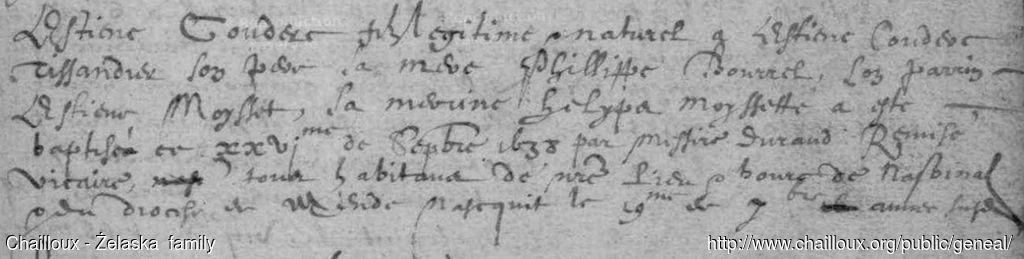 Estiene Couderc filz legitime & naturel d' Estiene Couderc
Tissandier son pere sa mere Phillippe Bourrel, son parrin
Estiene Moysset, sa merine helypa moyssette a este
baptisé ce xxvj me de Sepbre 1638 par Messire durand
Vicaire, tous habitans de nre lieu & bourc de Nasbinal
& du diocese de Mende Nascquit le 19 me de 7 bre annee
Chailloux - Żelaska family
http://www.chailloux.org/public/geneal/